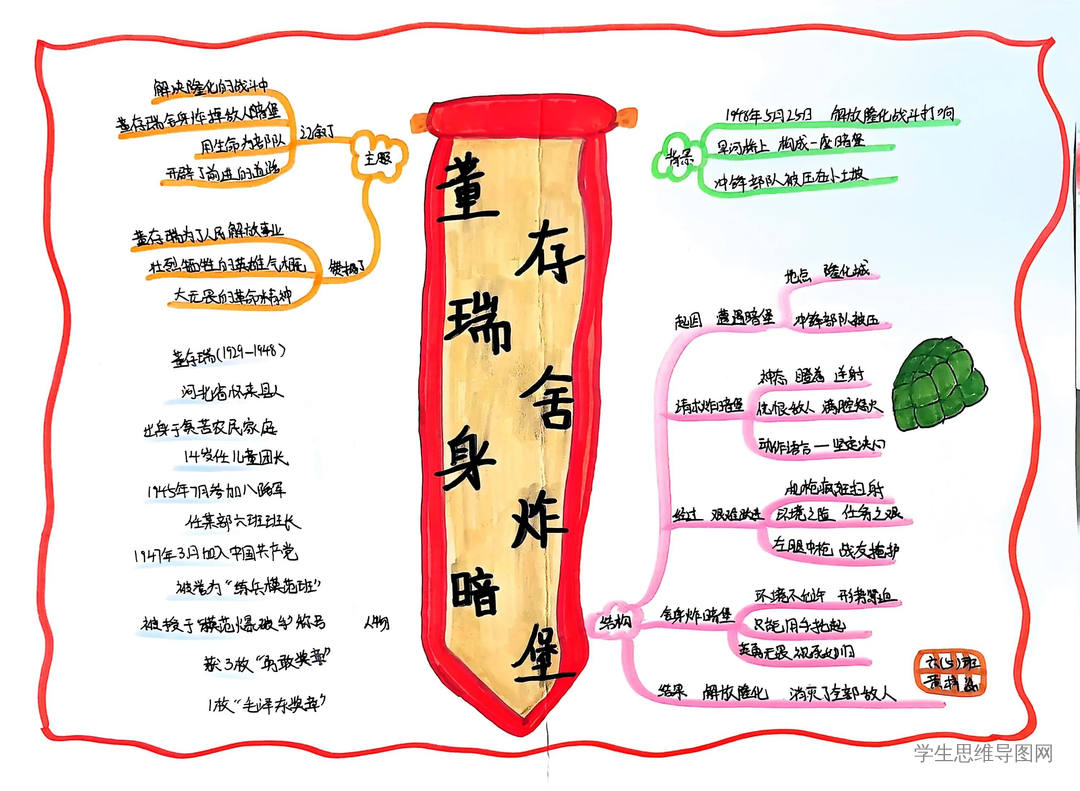 董存瑞舍身炸暗堡
主题
记叙了
解决隆化的战斗中
董存瑞舍身炸掉敌人暗堡
用生命为部队
开辟了前进的道路
赞扬了
董存瑞为了人民解放事业
壮烈牺牲的英雄气概
大无畏的革命精神
人物
董存瑞(1929-1948)
河北省怀来县人
出身于贫苦农民家庭
14岁任儿童团长
1945年7月参加八路军
任某部六班班长
1947年3月加入中国共产党
被誉为“练兵模范班”
被授予“模范爆破手”称号
获3枚“勇敢奖章”
1枚“毛泽东奖章”
背景
1948年5月25日 解放隆化战斗打响
旱河桥上 构成一座暗堡
冲锋部队被压在小土坡
结构
起因 遭遇暗堡
地点 隆化城
冲锋部队被压
请求炸暗堡
神态 瞪着 迸射
仇恨敌人 满腔怒火
动作语言—坚定决心
经过 艰难前进
机枪疯狂扫射
环境之险 任务之艰
左腿中枪 战友掩护
舍身炸暗堡
环境不允许 形势紧迫
只能用手托起
无畏 视死如归
结果 解放隆化 消灭了全部敌人
六(5)班
学生思维导图网